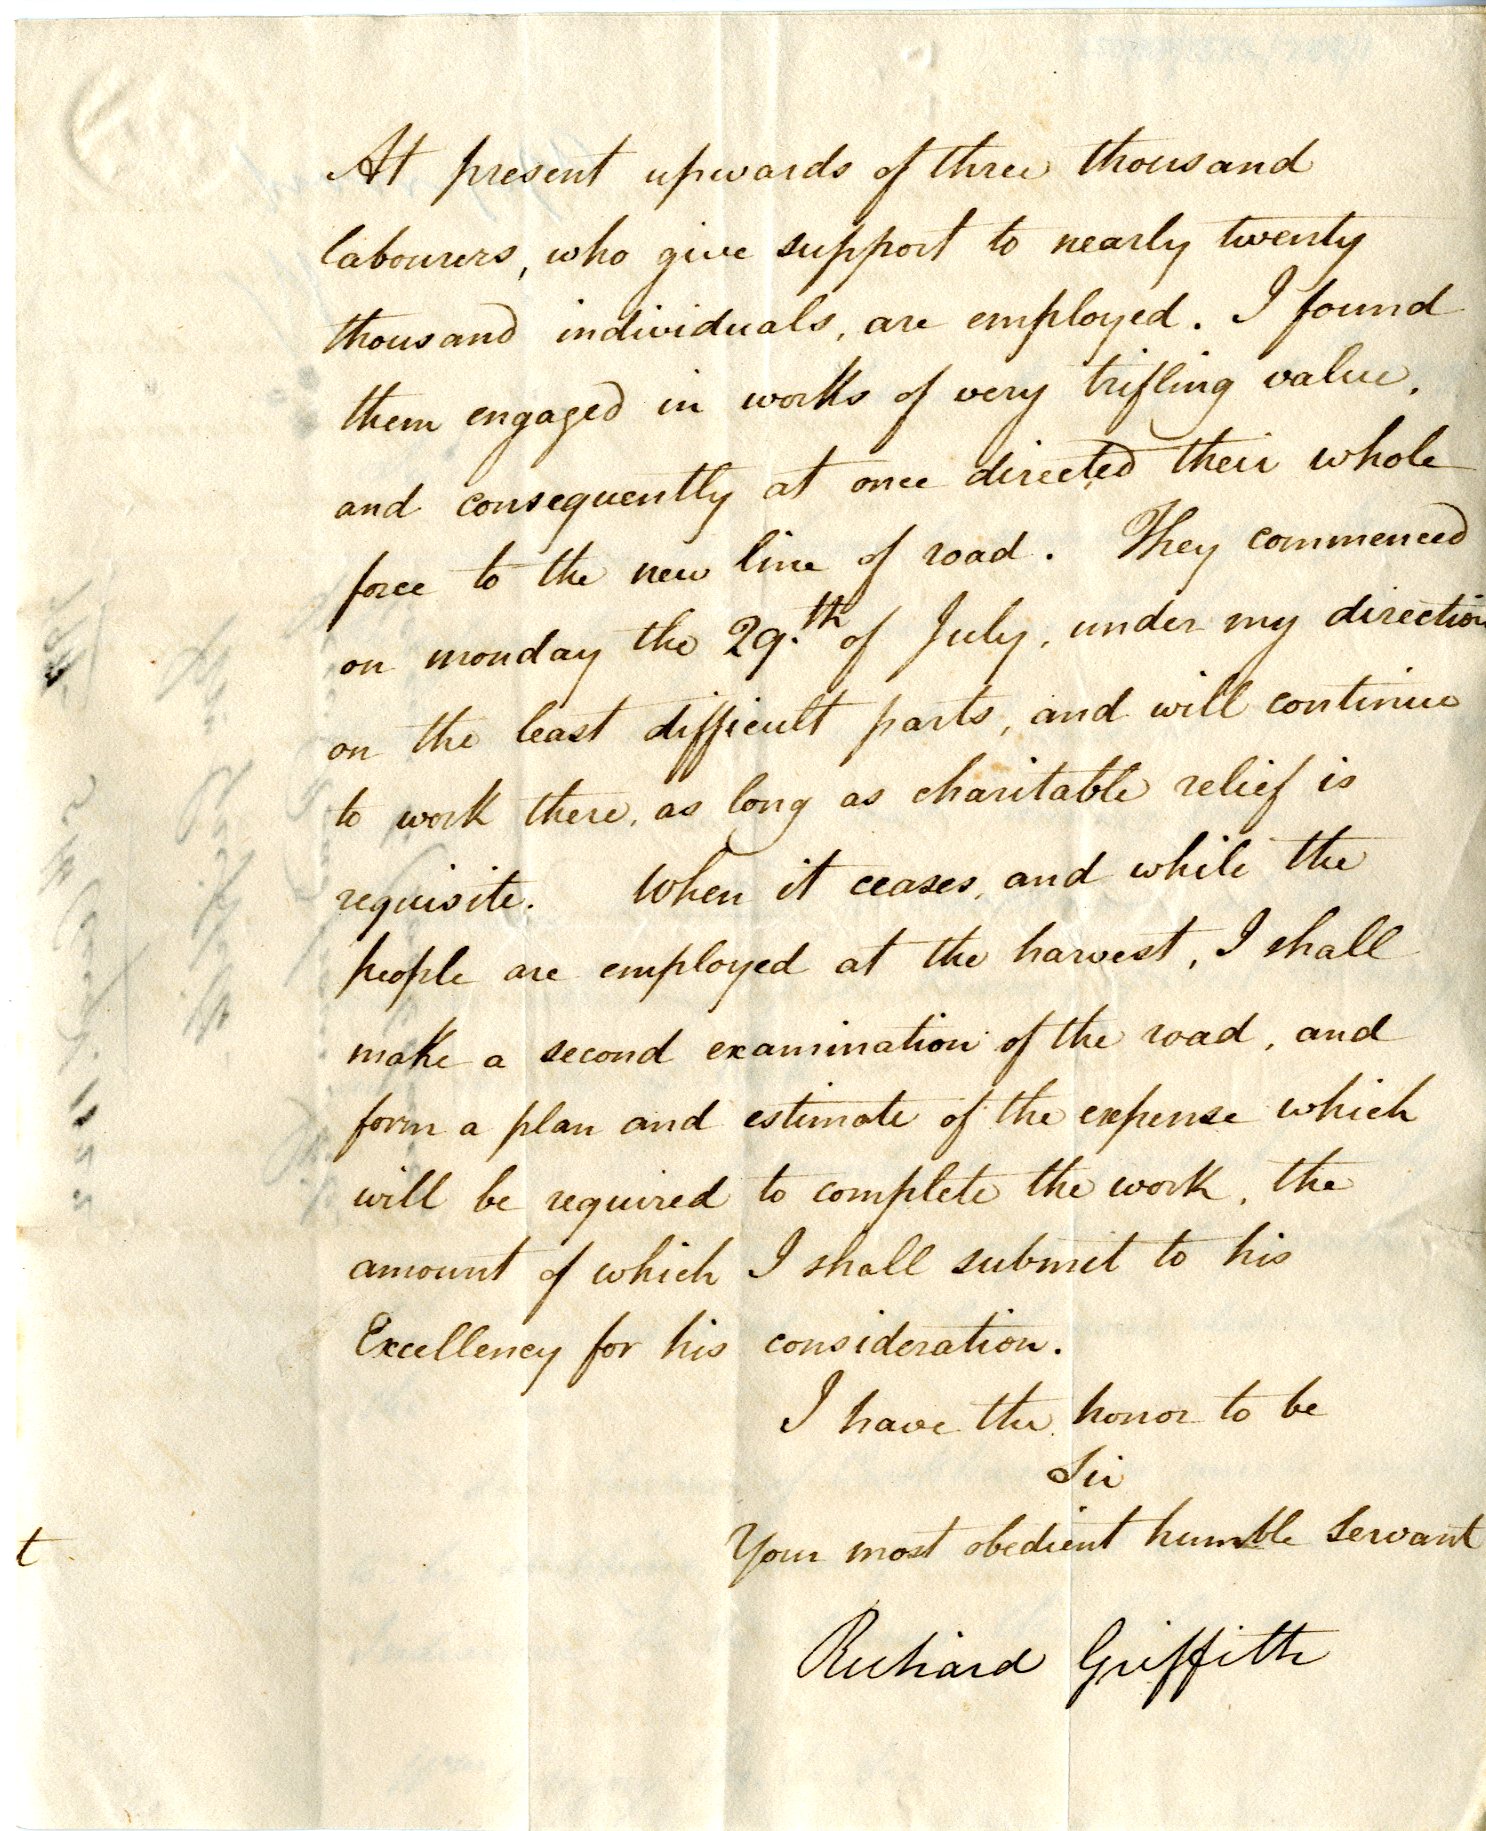 At present upwards of three thousand
labourers, who give support to nearly twenty
thousand individuals, are employed. I found
them engaged in works of very trifling value,
and consequently at once directed their whole
force to the new line of road. They commenced
on monday the 29.th of July, under my direction
on the least difficult parts, and will continue
to work there, as long as charitable relief is
requisite. When it ceases, and while the
people are employed at the harvest, I shall
make a second examination of the road, and
form a plan and estimate of the expense which
will be required to complete the work, the
amount of which I shall submit to his
Excellency for his consideration.
I have the honor to be
Sir
Your most obedient humble Servant
Richard Griffith
t